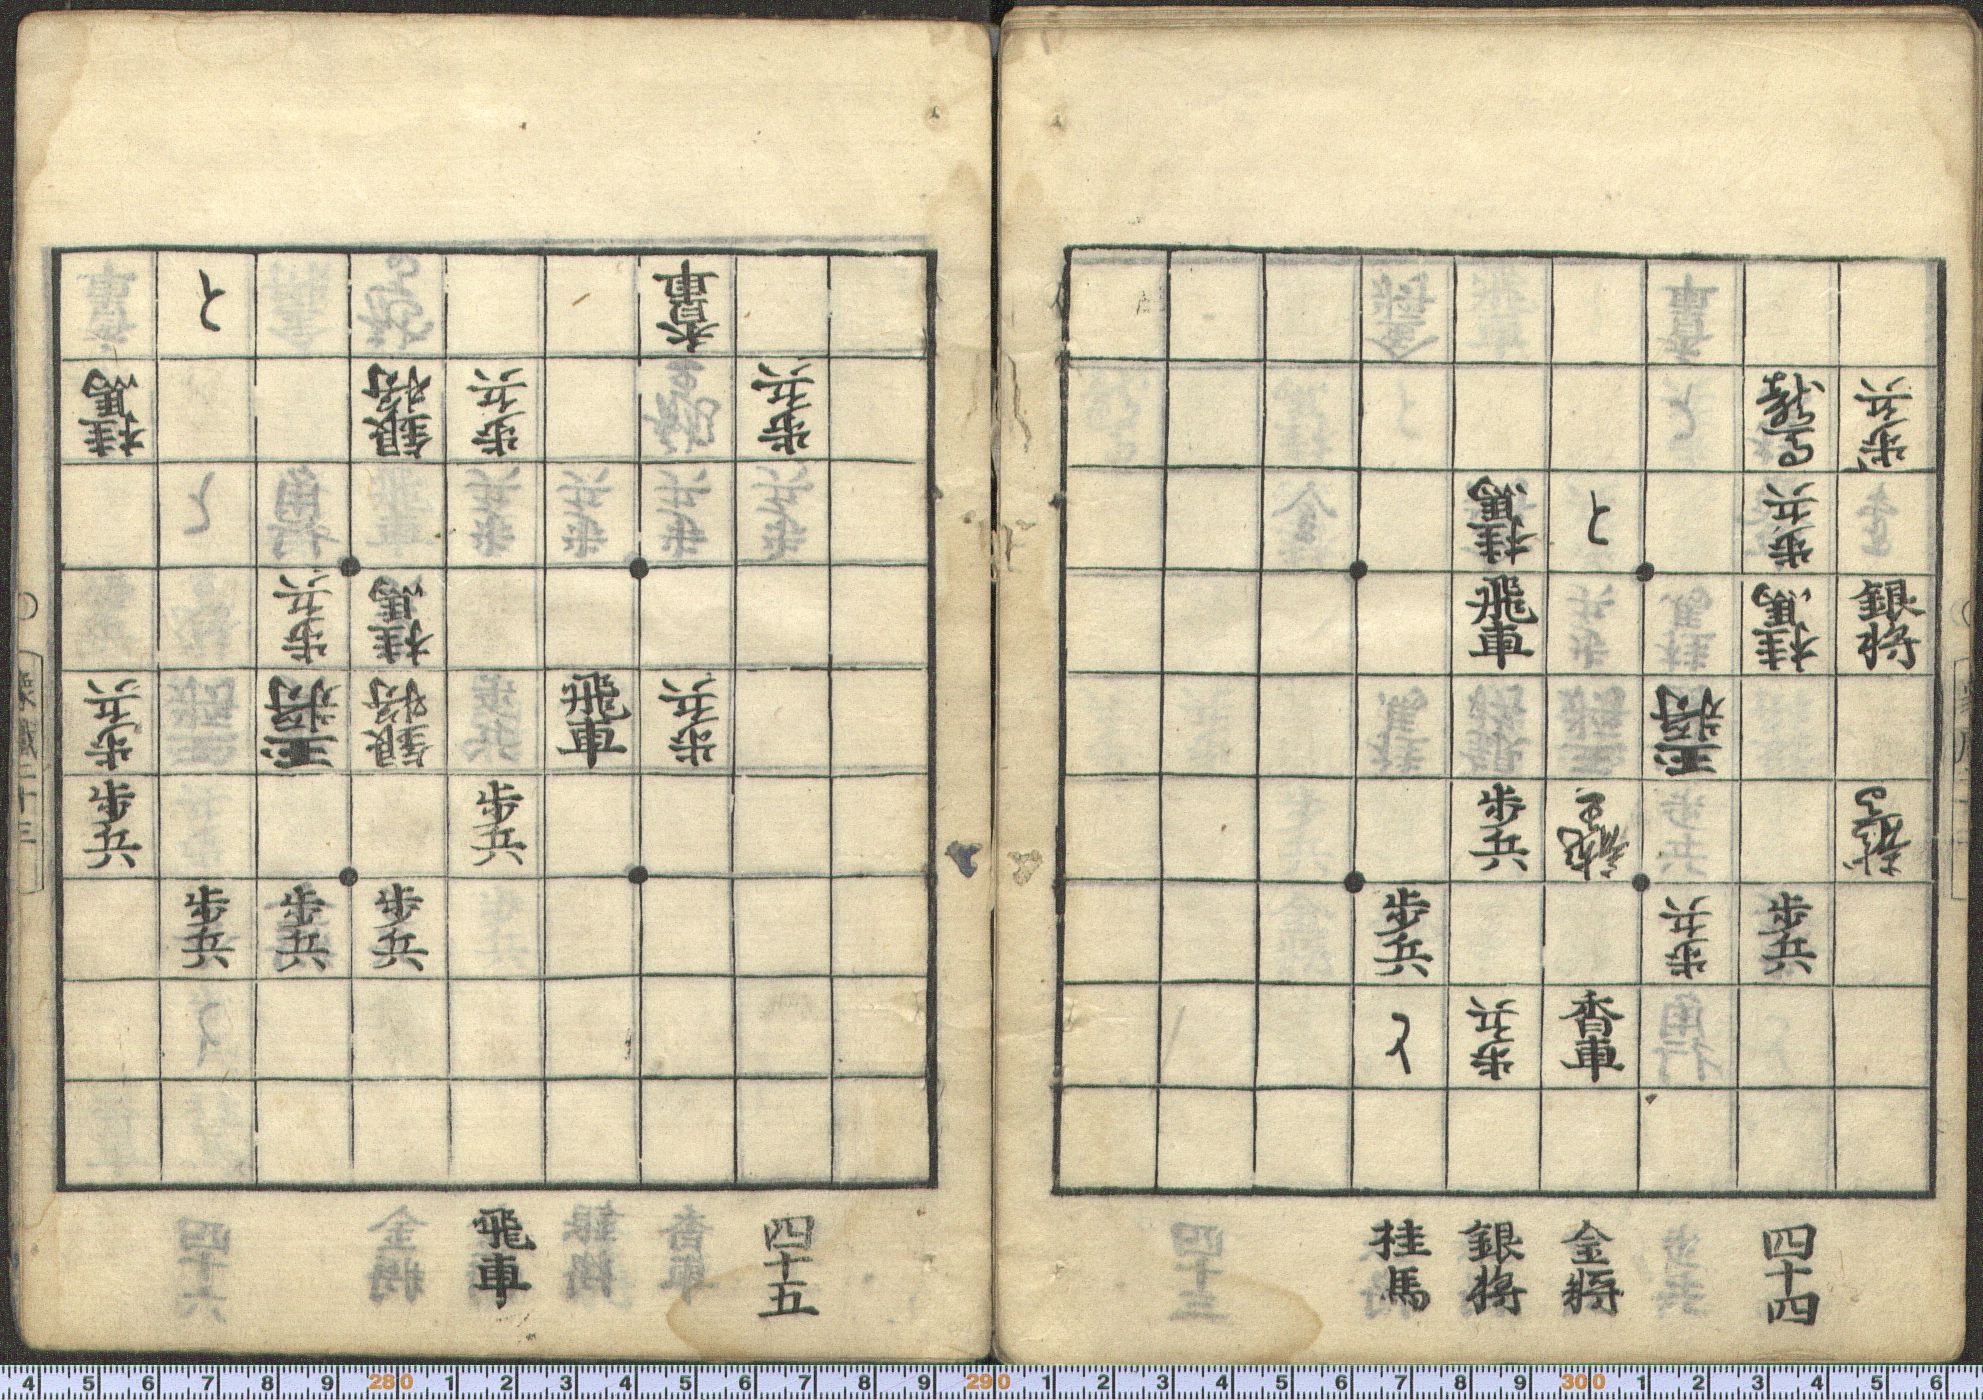 歩兵
銀将
歩兵
桂馬
歩兵
玉将
歩兵
と
香車
桂馬
飛車
歩兵
歩兵
歩兵
と
四十四
金将
銀将
桂馬
歩兵
香車
歩兵
飛車
歩兵
歩兵
銀将
桂馬
銀将
歩兵
歩兵
玉将
歩兵
と
歩兵
桂馬
歩兵
歩兵
四十五
飛車